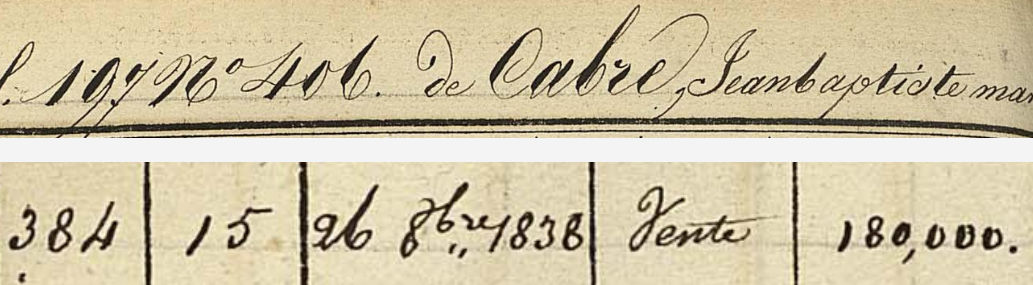 . 197 N° 406. de Cabre, Jeanbaptiste ma
384 15 26 8bre 1838 Vente 180,000.